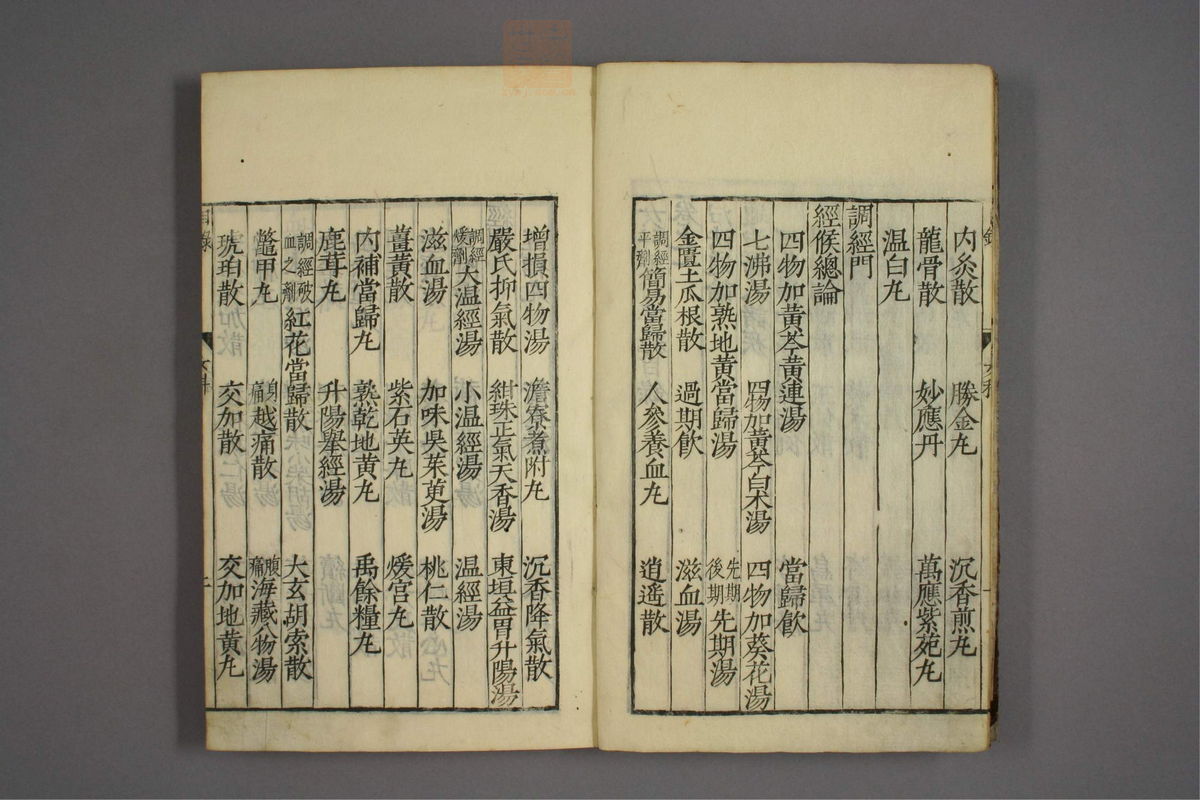 內灸散 勝金丸 沉香煎丸
龍骨散 妙應丹 萬應紫菀丸
温白丸
調經門
經候總論
四物加黃芩黃連湯 當歸飲
七沸湯 四物加黃芩白朮湯 四物加葵花湯
四物加熟地黃當歸湯 先期後期先期湯
金匱土瓜根散 過期飲 滋血湯
調經平劑簡易當歸散 人參養血丸 逍遙散
增損四物湯 澹寮煮附丸 沉香降氣散
嚴氏抑氣散 紺珠正氣天香湯 東垣益胃升陽湯
調經煖劑大温經湯 小温經湯 温經湯
滋血湯 加味吳茱萸湯 桃仁散
薑黃散 紫石英丸 煖宮丸
內補當歸丸 熟乾地黃丸 禹餘糧丸
鹿茸丸 升陽舉經湯
調經破血之劑紅花當歸散 大玄胡索散
鱉甲丸 身痛越痛散 腹痛海藏八物湯
琥珀散 交加散 交加地黃丸
目錄
女科